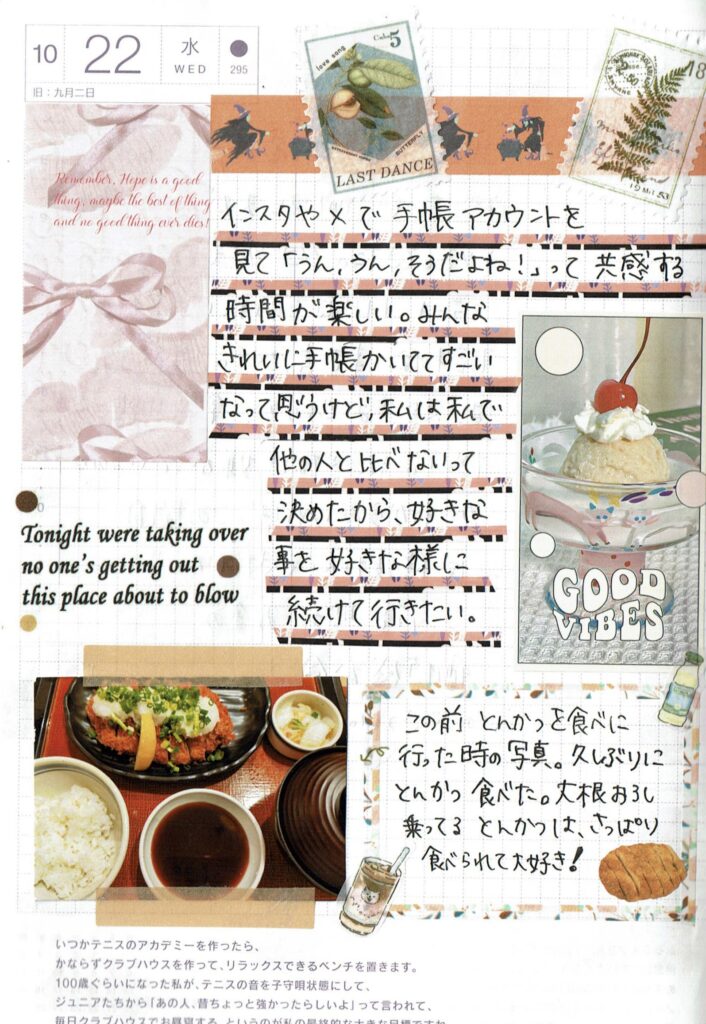 10
22
水
WED
295
旧：九月二日
love song
5
BUTTERFLY
LAST DANCE
18
Remember, Hope is a good
thing, maybe the best of thing
and no good thing ever dies!
インスタやXで 手帳アカウントを
見て「うん,うん,そうだよね!」って 共感する
時間が楽しい。みんな
きれいに手帳かいててすごい
なって思うけど,私は私で
他の人と比べないって
決めたから、好きな
事を好きな様に
続けて行きたい。
Tonight were taking over
no one's getting out
this place about to blow
GOOD
VIBES
この前 とんかつを食べに
行った時の写真。久しぶりに
とんかつ 食べた。大根おろし
乗ってる とんかつは、さっぱり
食べられて大好き!
いつかテニスのアカデミーを作ったら、
かならずクラブハウスを作って、リラックスできるベンチを置きます。
100歳ぐらいになった私が、テニスの音を子守唄状態にして、
ジュニアたちから「あの人、昔ちょっと強かったらしいよ」って言われて、
毎日クラブハウスでお昼寝する、というのが私の最終的な大きな目標ですね